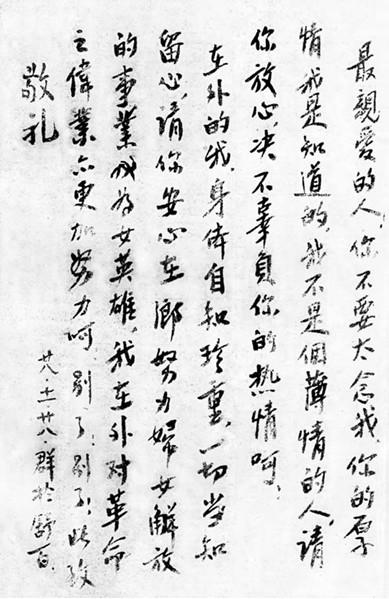 最親愛的人，你不要太念我，你的厚
情我是知道的，我不是個薄情的人，請
你放心，决不辜負你的热情呵，
在外的我，身体自知珍重，一切當知
留心，請你安心在鄉努力婦女解放
的事業，成為女英雄，我在外对革命
之偉業亦更加努力呵，别了，别了，此致
敬礼
廿八·十一·廿八·群於舒